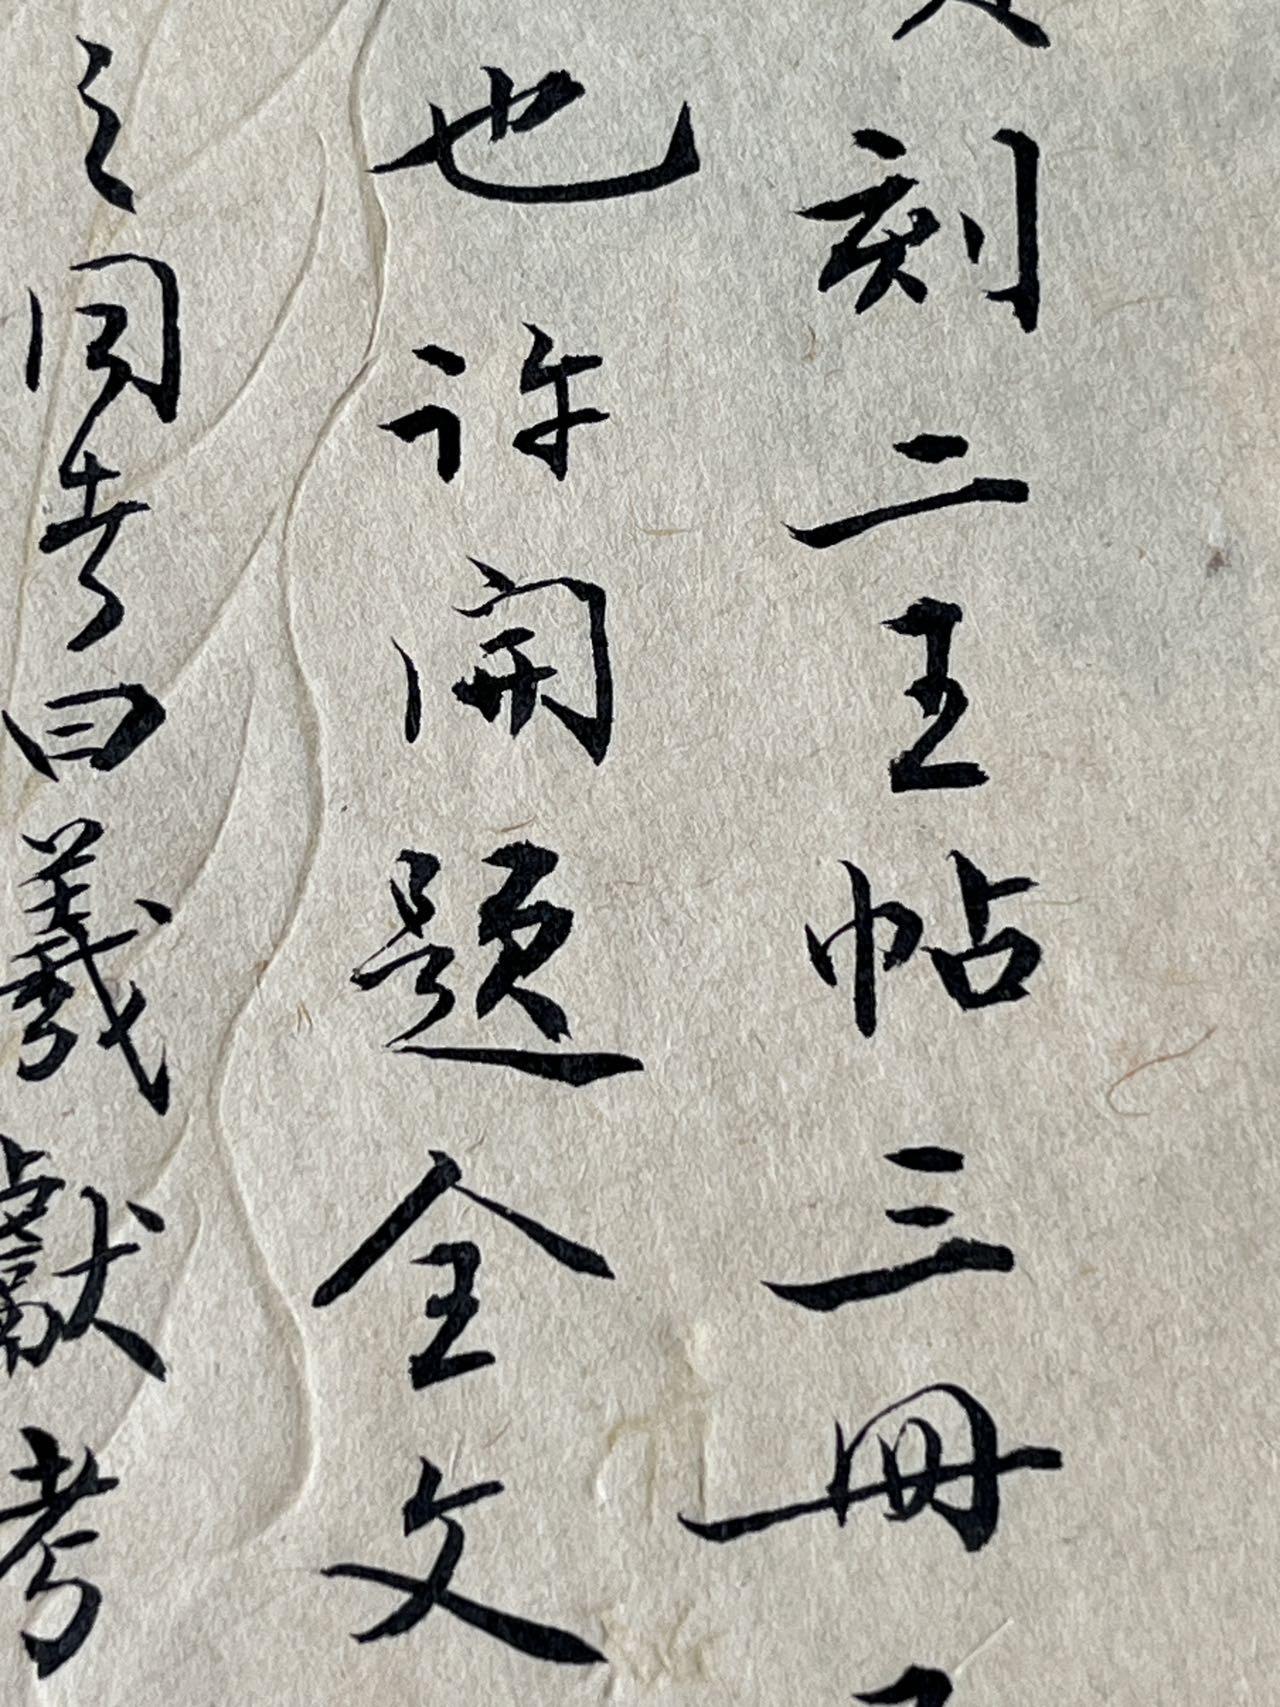 刻二王帖三冊
也許開題全文
之同考曰羲獻考